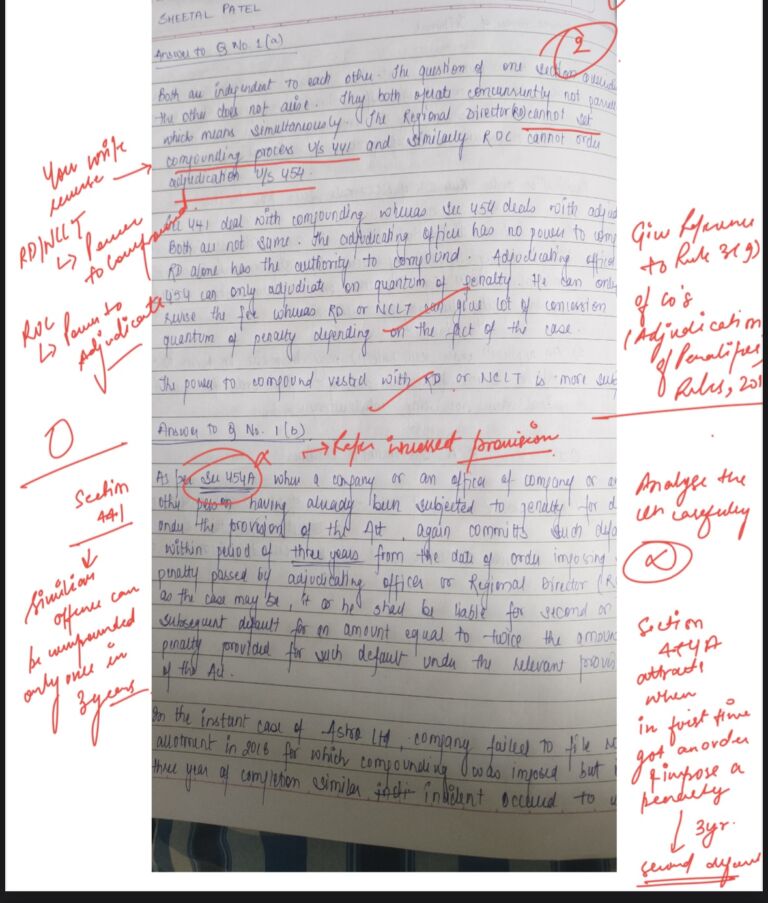 SHEETAL PATEL
Answer to Q No. 1 (a)
2
Both are independent to each other. The question of one section
the other does not arise. They both operate concurrently not
which means simultaneously. The Regional Director (RD) cannot set
compounding process u/s 441 and similarly ROC cannot order
adjudication u/s 454.
You write
reverse
RD/NCLT
↳ Power
to compound
ROC
↳ Power to
Adjudicate
Sec 441 deal with compounding whereas Sec 454 deals with
Both are not same. The adjudicating officer has no power to
RD alone has the authority to compound. Adjudicating
454 can only adjudicate on quantum of penalty. He can only
the fee whereas RD or NCLT can give lot of concession
quantum of penalty depending on the fact of the case.
The power to compound vested with RD or NCLT is more
Give Reference
to Rule 3(9)
of Co's
(Adjudication
of Penalties
Rules, 201
Answer to Q No. 1 (b)
→ Refer
provision
0
As per Sec 454A when a company or an officer of company or
other person having already been subjected to penalty for
under the provision of the Act, again commits such
within period of three years from the date of order imposing
penalty passed by adjudicating officer or Regional Director
as the case may be, it or he shall be liable for second or
subsequent default for an amount equal to twice the
penalty provided for such default under the relevant
of the Act.
Section
441
↓
Similar
offence can
be compounded
only once in
3 years
Analyse the
carefully
Section
454A
attracts
when
in first time
got an order
& impose a
penalty
↓ 3yr.
second
In the instant case of Astra Ltd, company failed to file
allotment in 2016 for which compounding was imposed but
three year of completion similar incident occured to